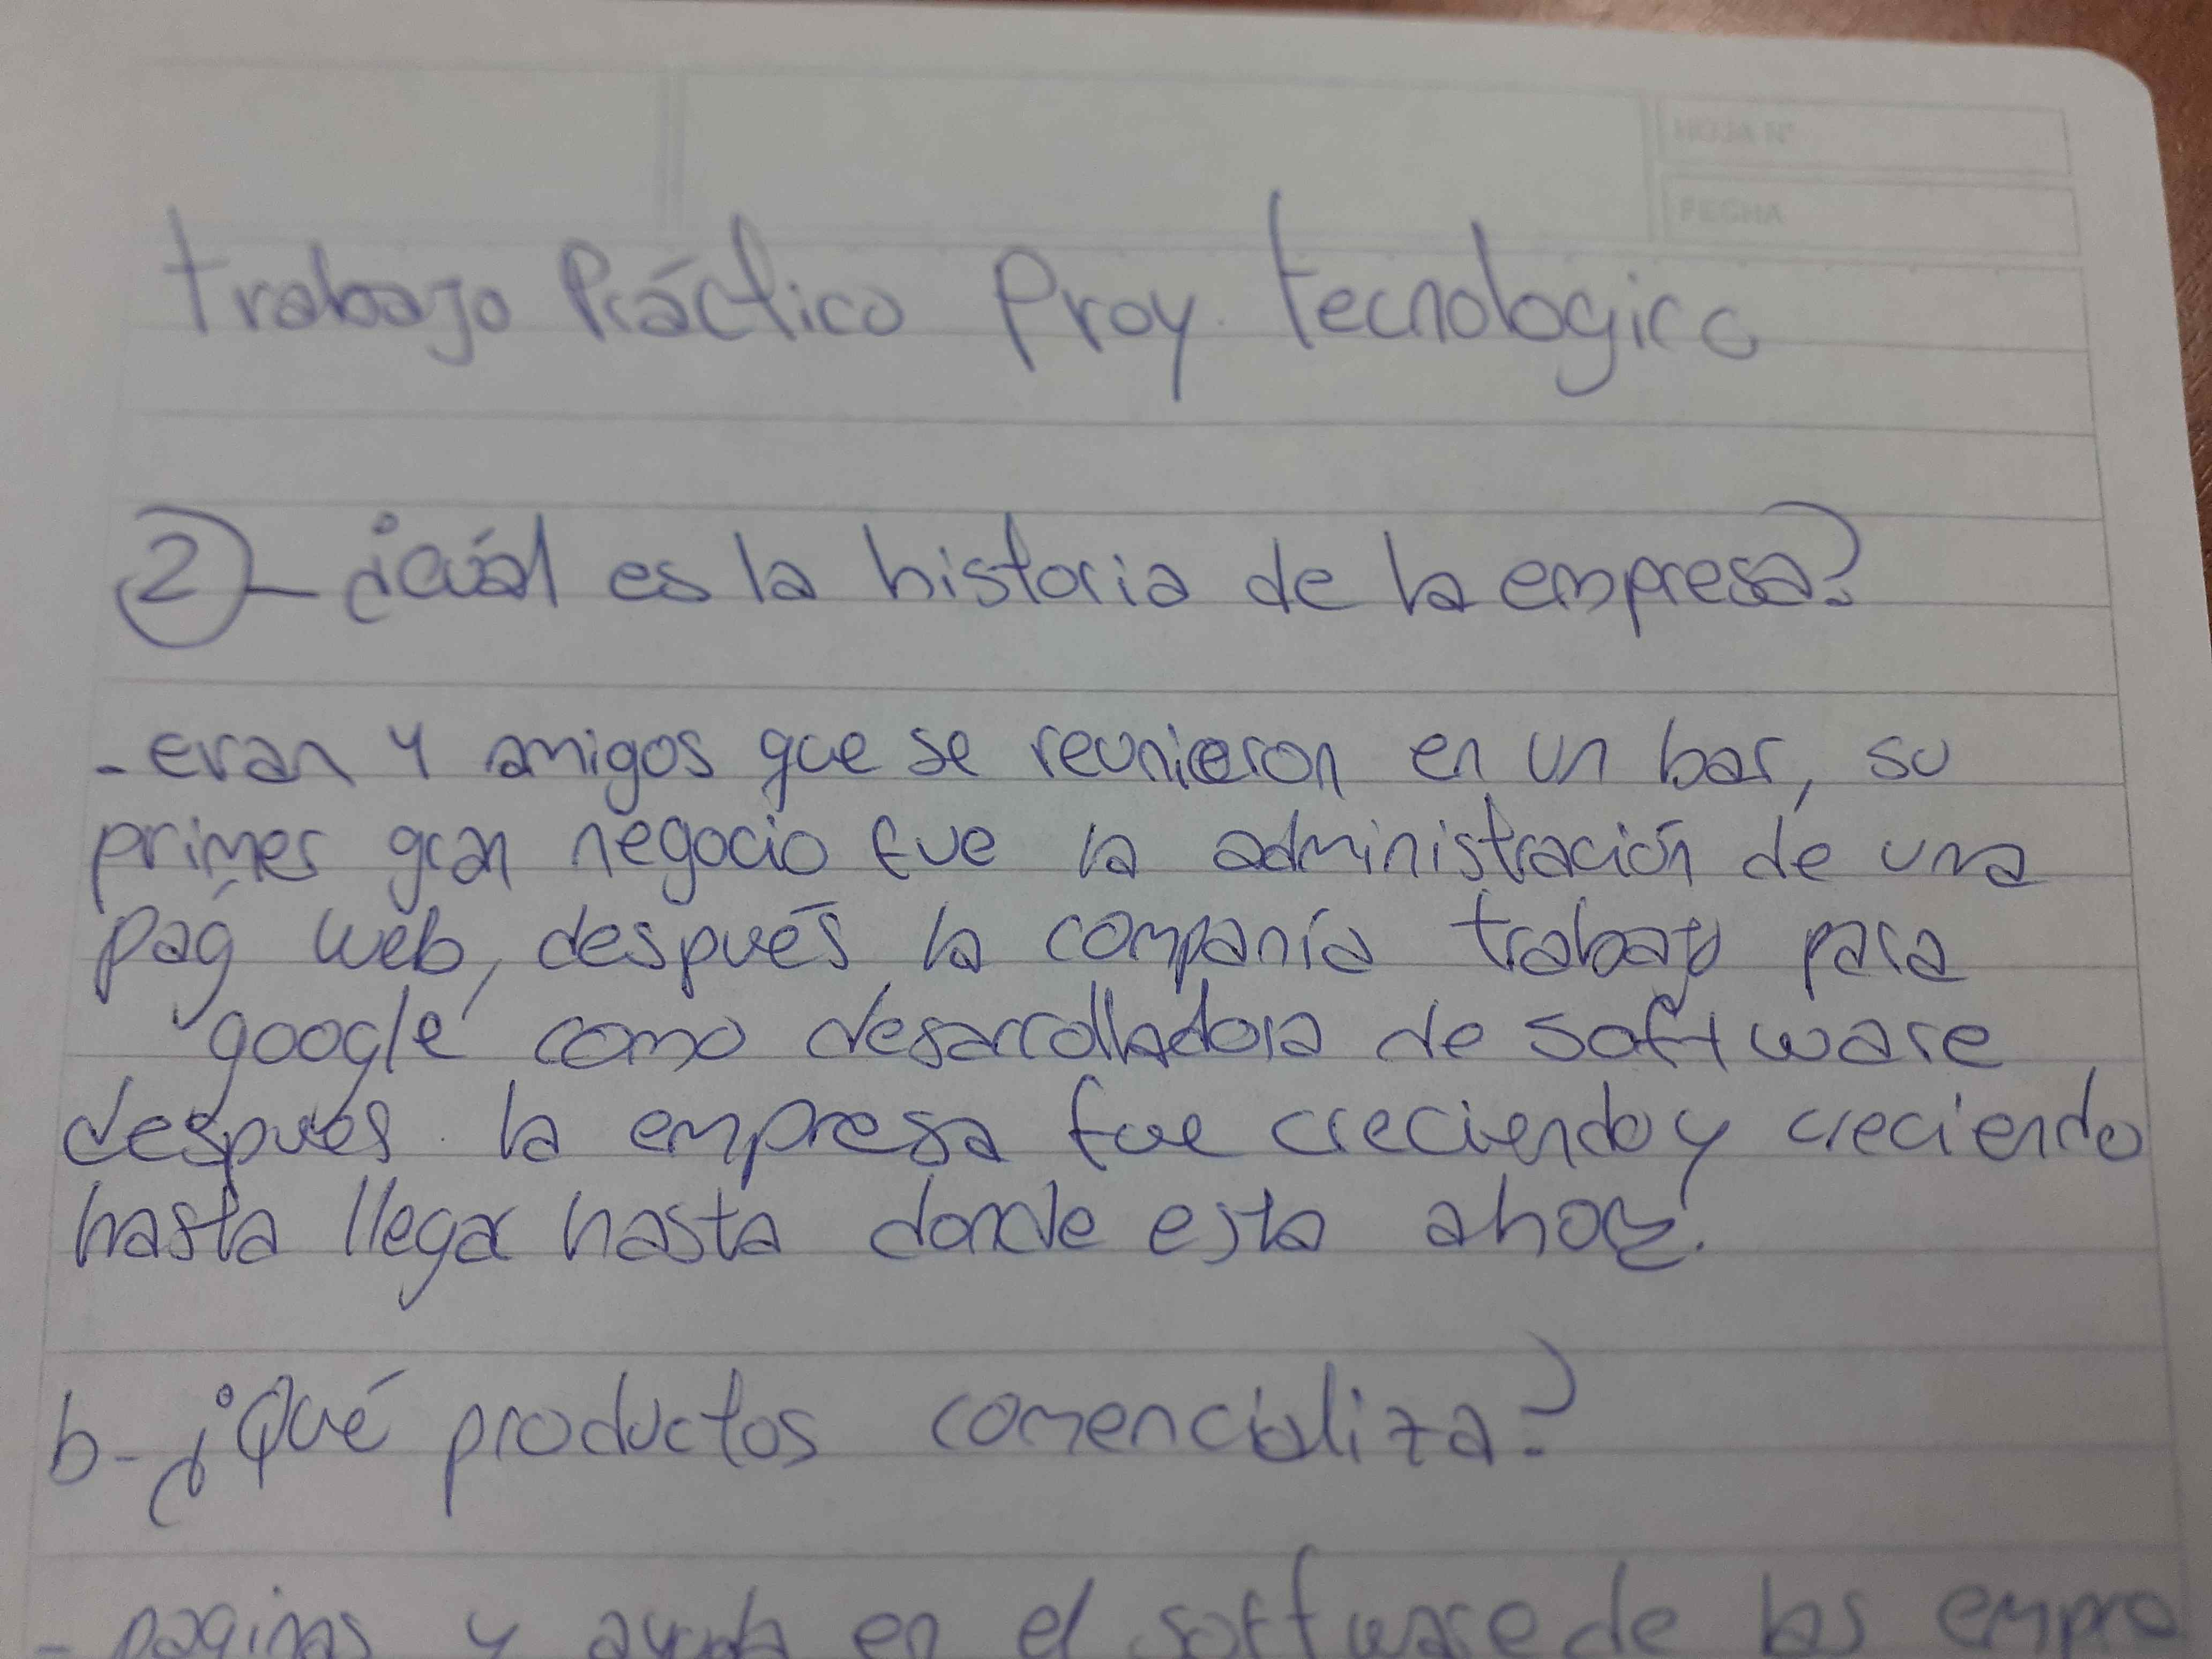 HOJA N°
FECHA
trabajo Práctico Proy. tecnologico
2- ¿Cuál es la historia de la empresa?
- eran 4 amigos que se reunieron en un bar, su
primer gran negocio fue la administración de una
pág web, después la compania trabajo para
"google" como desarrolladora de software
después la empresa fue creciendo y creciendo
hasta llegar hasta donde esta ahora.
b- ¿Qué productos comencializa?
- paginas y ayuda en el software de las empre